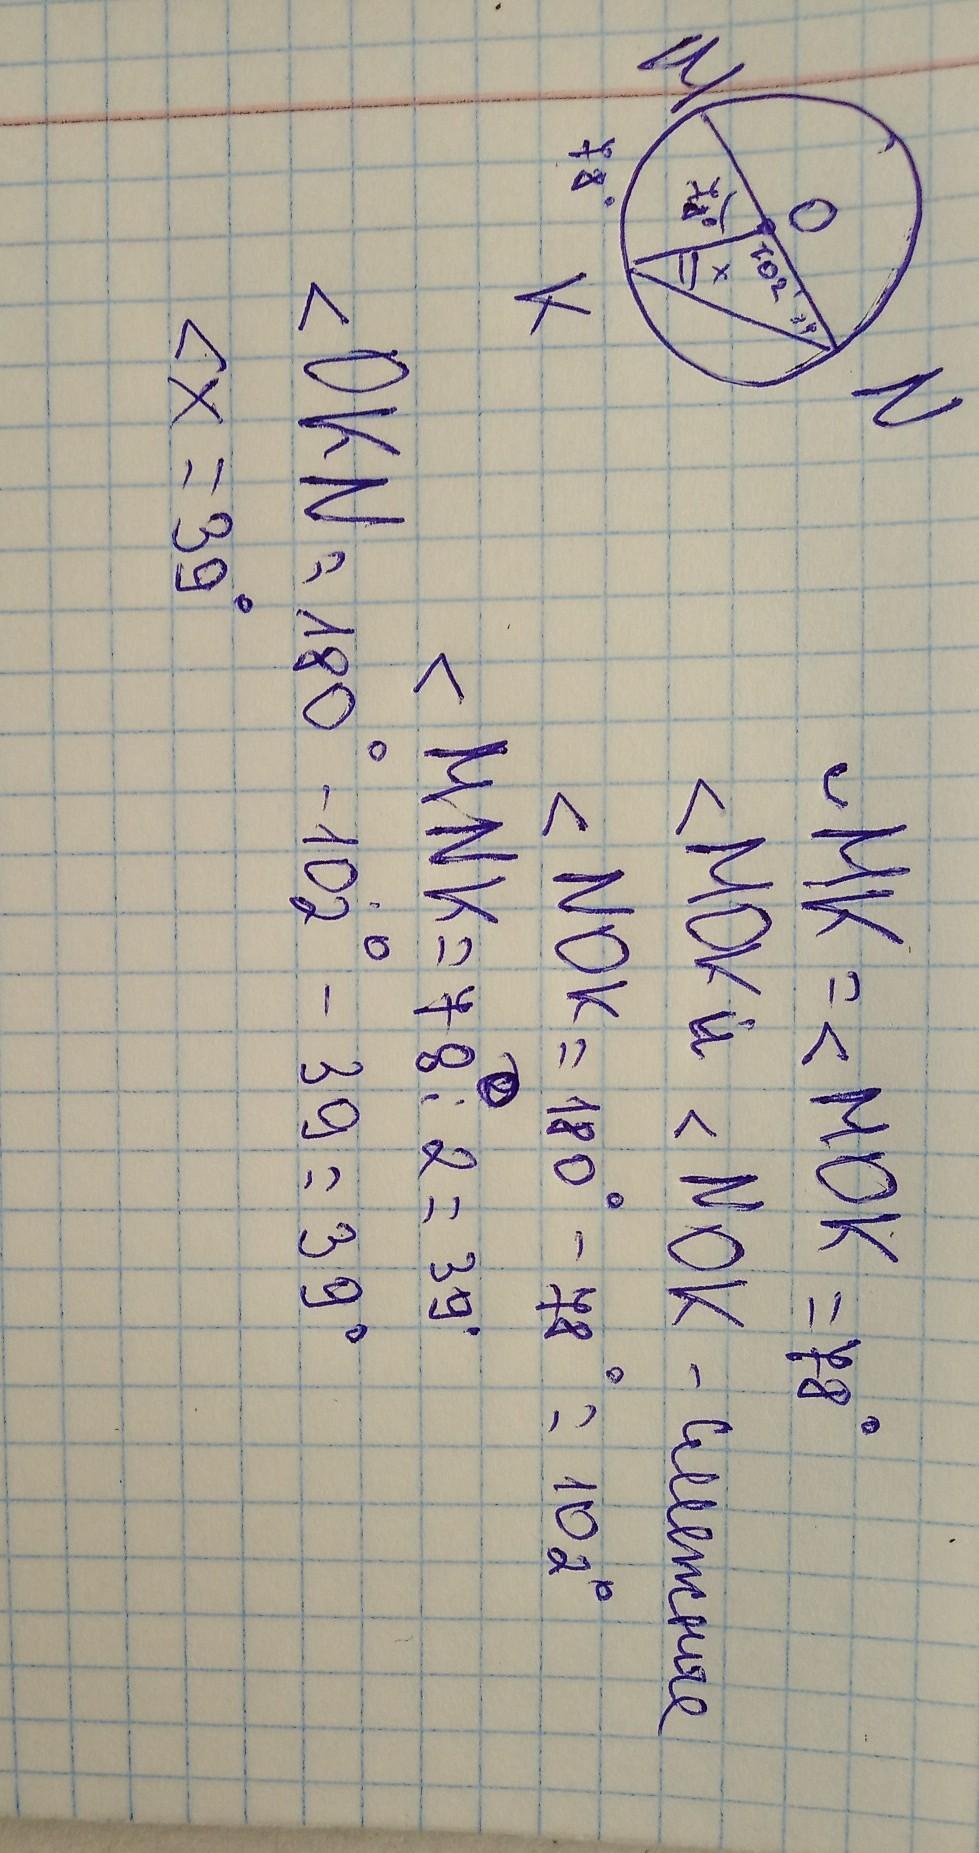 M
O
N
78°
78°
102°
39
x
K
◡MK = <MOK = 78°
<MOK и <NOK - смежные
<NOK = 180° - 78° = 102°
<MNK = 78° : 2 = 39°
<OKN = 180° - 102° - 39 = 39°
<x = 39°